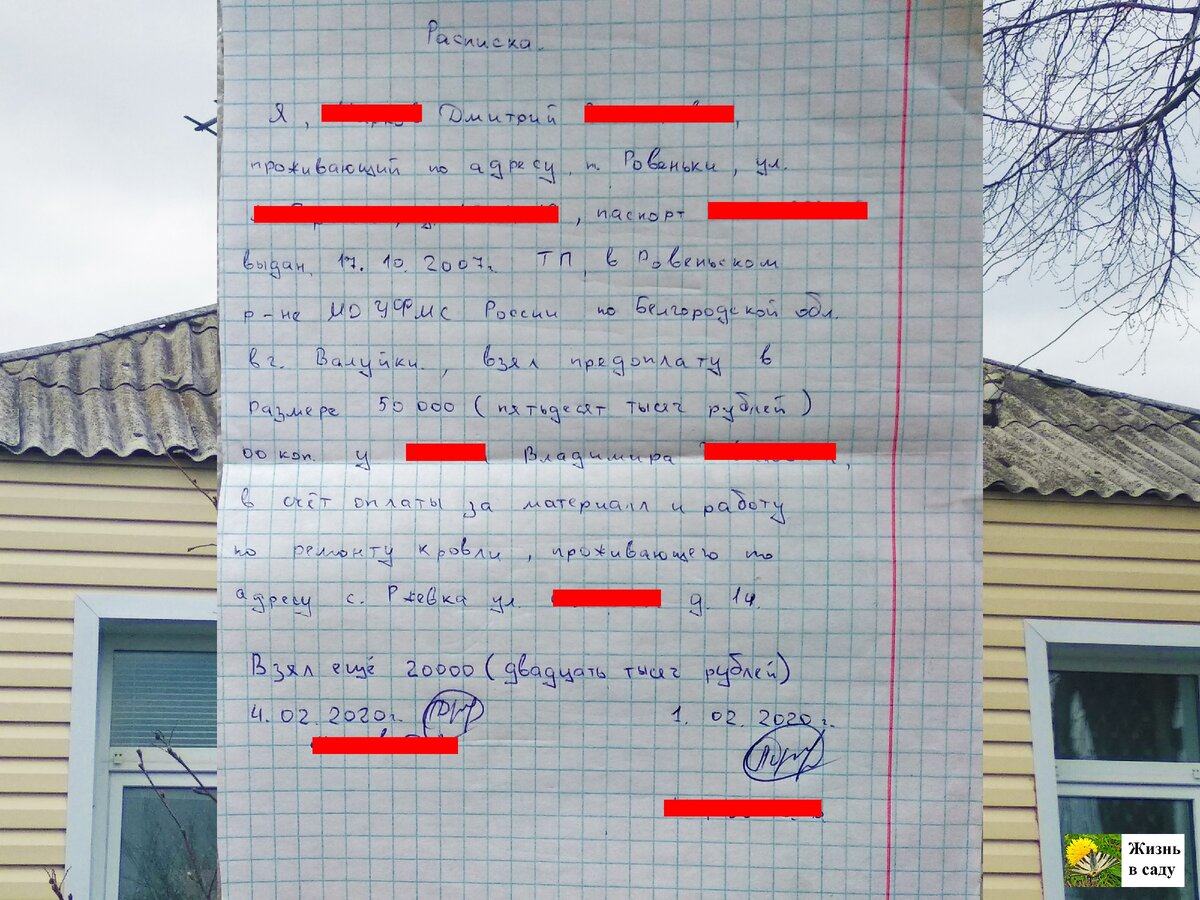 Расписка.
Я, Дмитрий ,
проживающий по адресу, п. Ровеньки, ул.
, паспорт
выдан, 17.10.2007г. ТП, в Ровеньском
р-не МО УФМС России по Белгородской обл.
в г. Валуйки., взял предоплату в
размере 50 000 (пятьдесят тысяч рублей)
00 коп. у Владимира ,
в счёт оплаты за материалл и работу
по ремонту кровли, проживающего по
адресу с. Ржевка ул. д. 14.
Взял ещё 20000 (двадцать тысяч рублей)
4.02.2020г. 1.02.2020г.
Жизнь
в саду